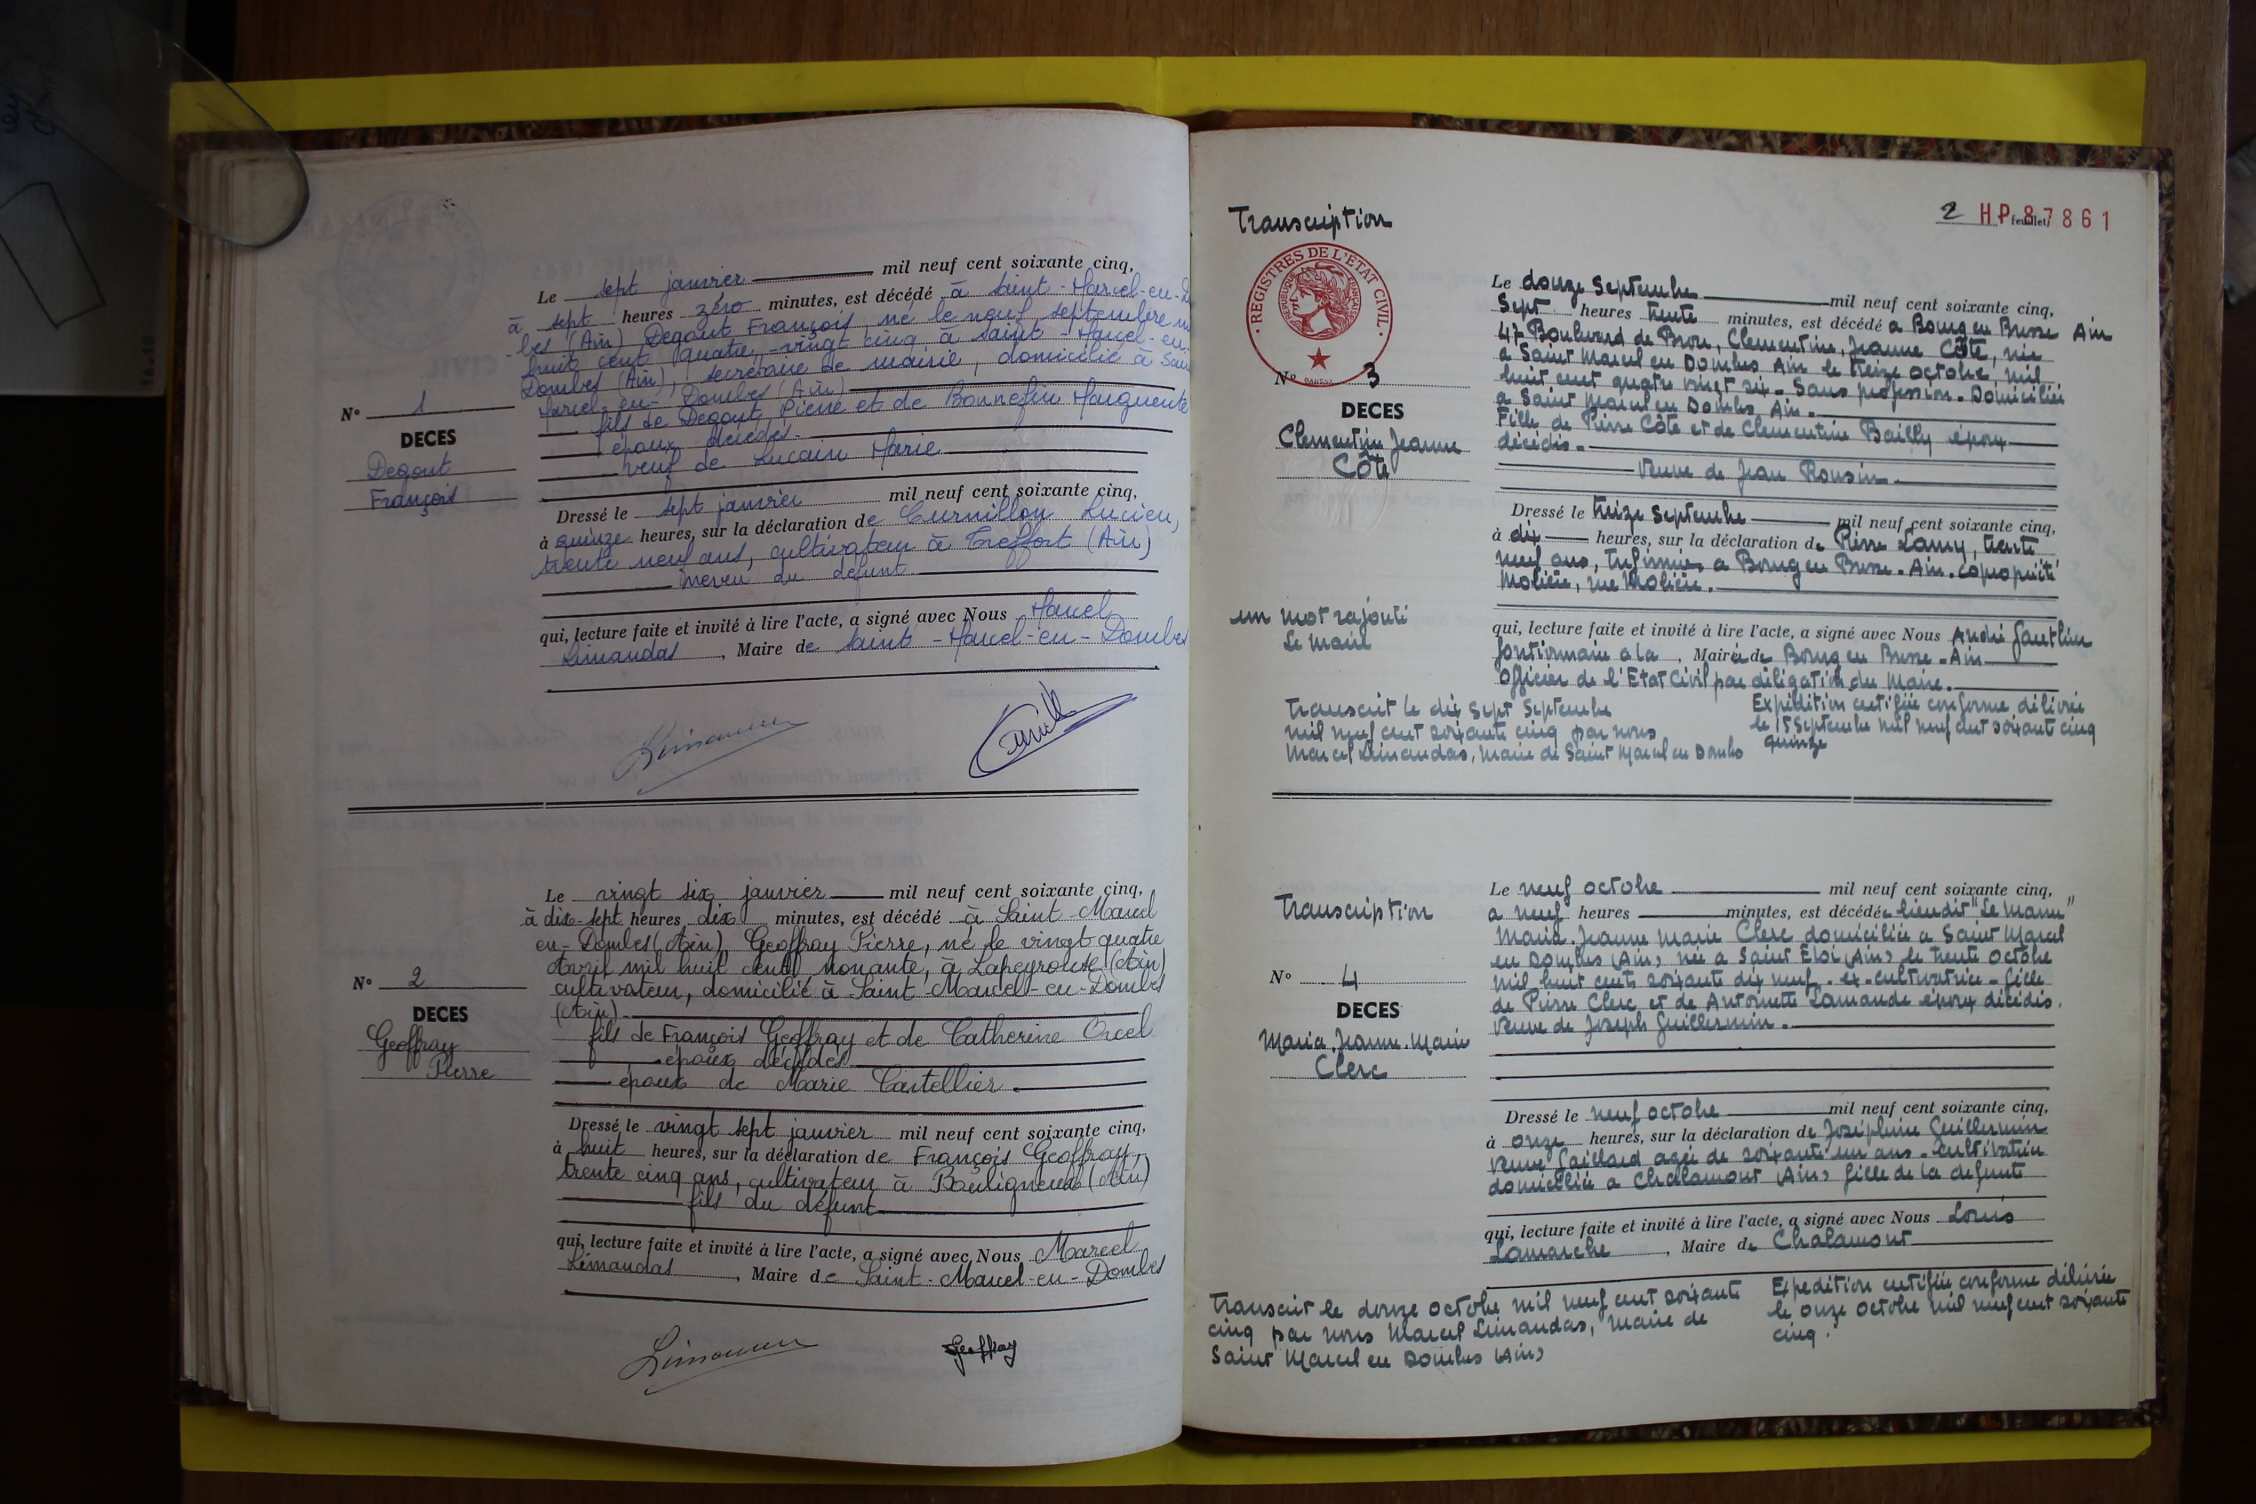 N° 1
DECES
Degout
François
Le sept janvier mil neuf cent soixante cinq,
à sept heures zéro minutes, est décédé à Saint-Marcel-en-D
bes (Ain) Degout François, né le neuf septembre m
huit cent quatre-vingt cinq à Saint-Marcel-en-
Dombes (Ain), secrétaire de mairie, domicilié à Sain
Marcel-en-Dombes (Ain)
fils de Degout Pierre et de Bonnefin Marguerite
époux décédés.
veuf de Lucain Marie
Dressé le sept janvier mil neuf cent soixante cinq,
à quinze heures, sur la déclaration de Curnillon Lucien,
trente neuf ans, cultivateur à Treffort (Ain)
neveu du défunt
qui, lecture faite et invité à lire l'acte, a signé avec Nous Marcel
Limandas, Maire de Saint-Marcel-en-Dombes
N° 2
DECES
Geoffray
Pierre
Le vingt six janvier mil neuf cent soixante cinq,
à dix-sept heures dix minutes, est décédé à Saint-Marcel
en-Dombes (Ain), Geoffray Pierre, né le vingt quatre
Avril mil huit cent nonante, à Lapeyrouse (Ain)
cultivateur, domicilié à Saint-Marcel-en-Dombes
(Ain).
fils de François Geoffray et de Catherine Orcel
époux décédés
époux de Marie Cartellier.
Dressé le vingt sept janvier mil neuf cent soixante cinq,
à huit heures, sur la déclaration de François Geoffray,
trente cinq ans, cultivateur à Bouligneux (Ain)
fils du défunt
qui, lecture faite et invité à lire l'acte, a signé avec Nous Marcel
Limandas, Maire de Saint-Marcel-en-Dombes
Geoffray
2 feuillet HP 87861
Transcription
REGISTRES DE L'ETAT CIVIL
N° 3
DECES
Clementine Jeanne
Côte
Le douze Septembre mil neuf cent soixante cinq,
Sept heures trente minutes, est décédé a Bourg en Bresse Ain
47 Boulevard de Brou, Clementine, Jeanne Côte, née
a Saint Marcel en Dombes Ain le treize octobre, mil
huit cent quatre vingt six. Sans profession. Domiciliée
a Saint Marcel en Dombes Ain.
Fille de Pierre Côte et de Clementine Bailly époux
décédés.
veuve de Jean Rousin.
Dressé le treize Septembre mil neuf cent soixante cinq,
à dix heures, sur la déclaration de Pierre Lamy, trente
neuf ans, Infirmier a Bourg en Bresse. Ain. copropriété
Molière, rue Molière.
qui, lecture faite et invité à lire l'acte, a signé avec Nous André Gauthier
fonctionnaire a la, Mairie de Bourg en Bresse. Ain
Officier de l'Etat Civil par délégation du Maire.
un mot rajouté
Le Maire
Transcrit le dix sept Septembre
mil neuf cent soixante cinq par nous
Marcel Limandas, Maire de Saint Marcel en Dombes
Expédition certifiée conforme délivrée
le 15 Septembre mil neuf cent soixante cinq
quinze
Transcription
N° 4
DECES
Maria.Jeanne.Marie
Clerc
Le neuf octobre mil neuf cent soixante cinq,
a neuf heures minutes, est décédée lieu dit
Maria.Jeanne Marie Clerc domiciliée a Saint Marcel
en Dombes (Ain) née a Saint Eloi (Ain) le trente octobre
mil huit cent soixante dix neuf. ex-cultivatrice - fille
de Pierre Clerc et de Antoinette Lamande époux décédés.
veuve de Joseph Guillermin.
Dressé le neuf octobre mil neuf cent soixante cinq,
à onze heures, sur la déclaration de Joséphine Guillermin
veuve Gaillard agée de soixante un ans. Cultivatrice
domiciliée a Chalamont (Ain) fille de la defunte
qui, lecture faite et invité à lire l'acte, a signé avec Nous Louis
Lamarche, Maire de Chalamont
Transcrit le douze octobre mil neuf cent soixante
cinq par nous Marcel Limandas, maire de
Saint Marcel en Dombes (Ain)
Expedition certifiée conforme délivrée
le onze octobre mil neuf cent soixante
cinq.